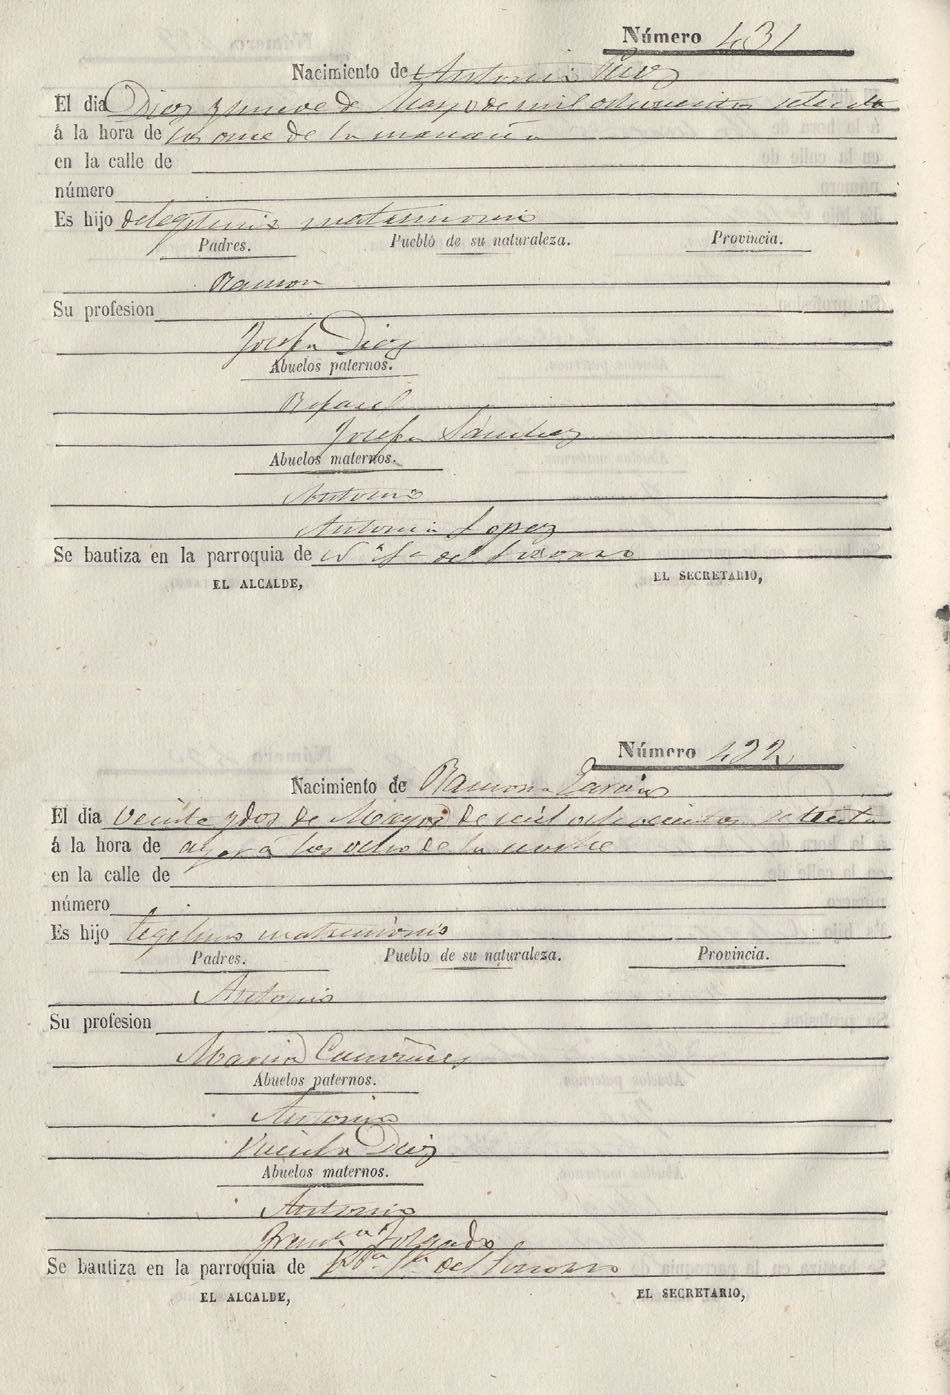 Número 431
Nacimiento de Antonia
El dia Diez y nueve de Mayo de mil ochocientos setenta
á la hora de las once de la manaña
en la calle de
número
Es hijo de legitimo matrimonio
Padres. Pueblo de su naturaleza. Provincia.
Ramon
Su profesion
Josefa Diez
Abuelos paternos.
Rafael
Josefa Sánchez
Abuelos maternos.
Antonio
Antonia Lopez
Se bautiza en la parroquia de Nª Sª del Socorro
EL ALCALDE, EL SECRETARIO,
Número 432
Nacimiento de Ramona Garcia
El dia Veinte y dos de Mayo de mil ochocientos setenta
á la hora de a las ocho de la noche
en la calle de
número
Es hijo legitimo matrimonio
Padres. Pueblo de su naturaleza. Provincia.
Antonio
Su profesion
Maria
Abuelos paternos.
Antonio
Vicenta Diez
Abuelos maternos.
Antonio
Franca
Se bautiza en la parroquia de Ntra Sra del Socorro
EL ALCALDE, EL SECRETARIO,